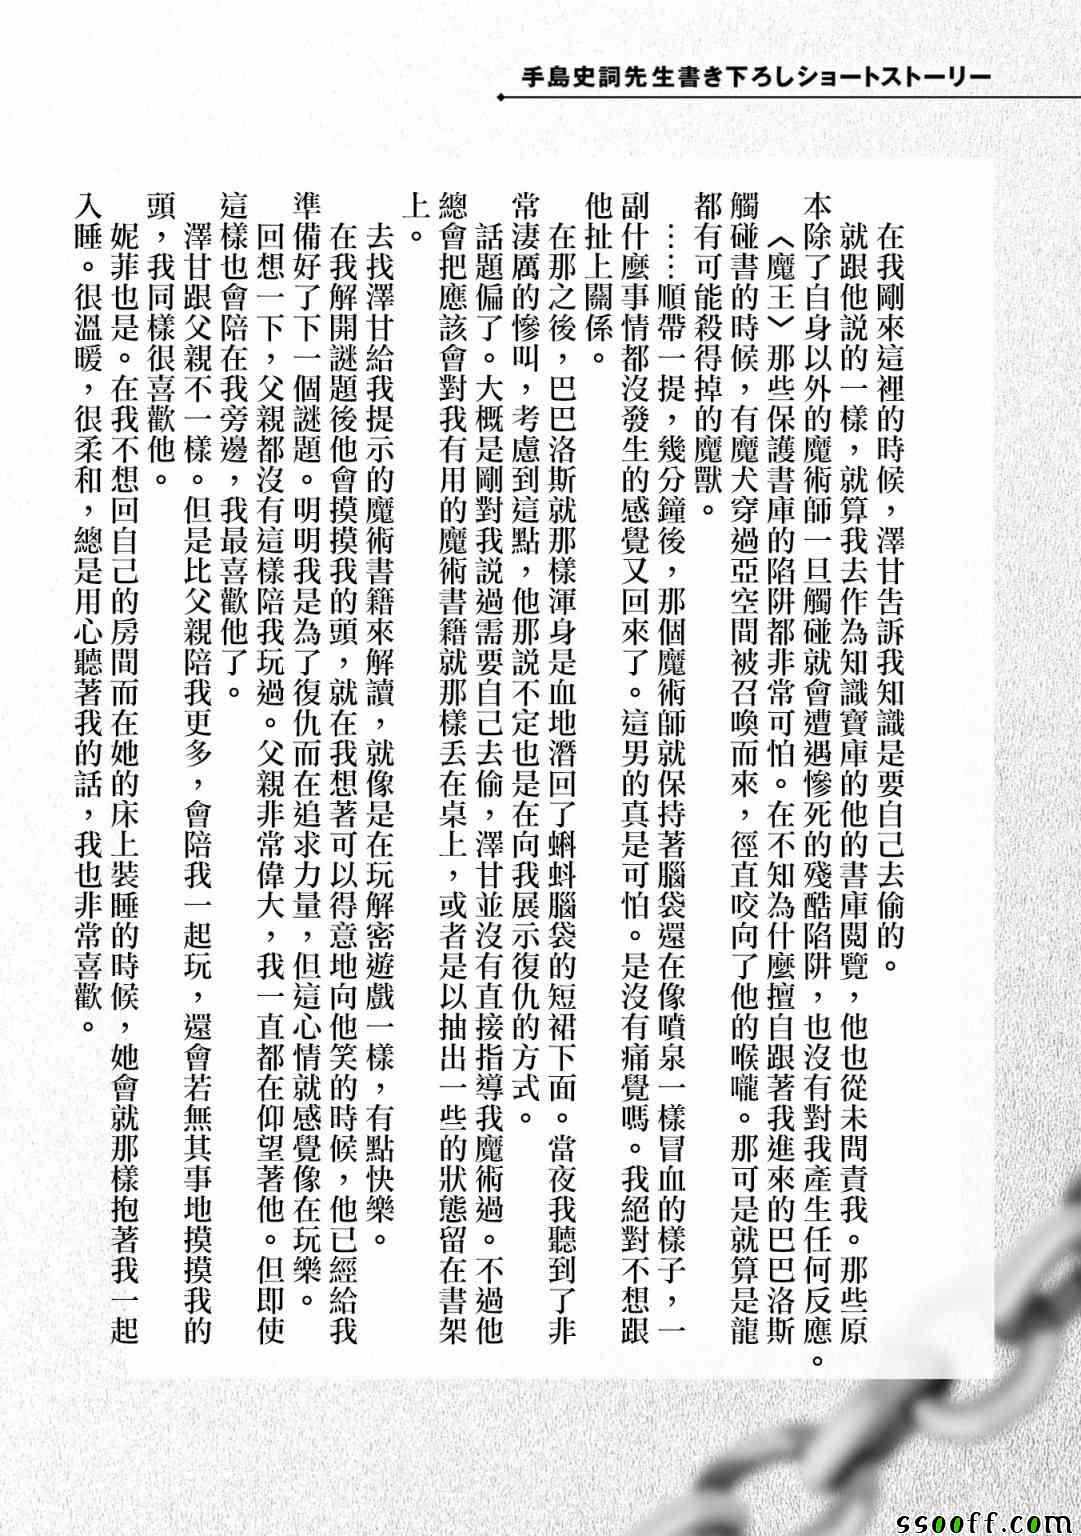 手島史詞先生書き下ろしショートストーリー
在我剛來這裡的時候，澤甘告訴我知識是要自己去偷的。
就跟他説的一樣，就算我去作為知識寶庫的他的書庫閲覽，他也從未問責我。那些原
本除了自身以外的魔術師一旦觸碰就會遭遇慘死的殘酷陷阱，也沒有對我產生任何反應。
〈魔王〉那些保護書庫的陷阱都非常可怕。在不知為什麼擅自跟著我進來的巴巴洛斯
觸碰書的時候，有魔犬穿過亞空間被召喚而來，徑直咬向了他的喉嚨。那可是就算是龍
都有可能殺得掉的魔獸。
……順帶一提，幾分鐘後，那個魔術師就保持著腦袋還在像噴泉一樣冒血的樣子，一
副什麼事情都沒發生的感覺又回來了。這男的真是可怕。是沒有痛覺嗎。我絕對不想跟
他扯上關係。
在那之後，巴巴洛斯就那樣渾身是血地潛回了蝌蚪腦袋的短裙下面。當夜我聽到了非
常淒厲的慘叫，考慮到這點，他那說不定也是在向我展示復仇的方式。
話題偏了。大概是剛對我説過需要自己去偷，澤甘並沒有直接指導我魔術過。不過他
總會把應該會對我有用的魔術書籍就那樣丟在桌上，或者是以抽出一些的狀態留在書架
上。
去找澤甘給我提示的魔術書籍來解讀，就像是在玩解密遊戲一樣，有點快樂。
在我解開謎題後他會摸摸我的頭，就在我想著可以得意地向他笑的時候，他已經給我
準備好了下一個謎題。明明我是為了復仇而在追求力量，但這心情就感覺像在玩樂。
回想一下，父親都沒有這樣陪我玩過。父親非常偉大，我一直都在仰望著他。但即使
這樣也會陪在我旁邊，我最喜歡他了。
澤甘跟父親不一樣。但是比父親陪我更多，會陪我一起玩，還會若無其事地摸摸我的
頭，我同樣很喜歡他。
妮菲也是。在我不想回自己的房間而在她的床上裝睡的時候，她會就那樣抱著我一起
入睡。很溫暖，很柔和，總是用心聽著我的話，我也非常喜歡。
ssooff.com